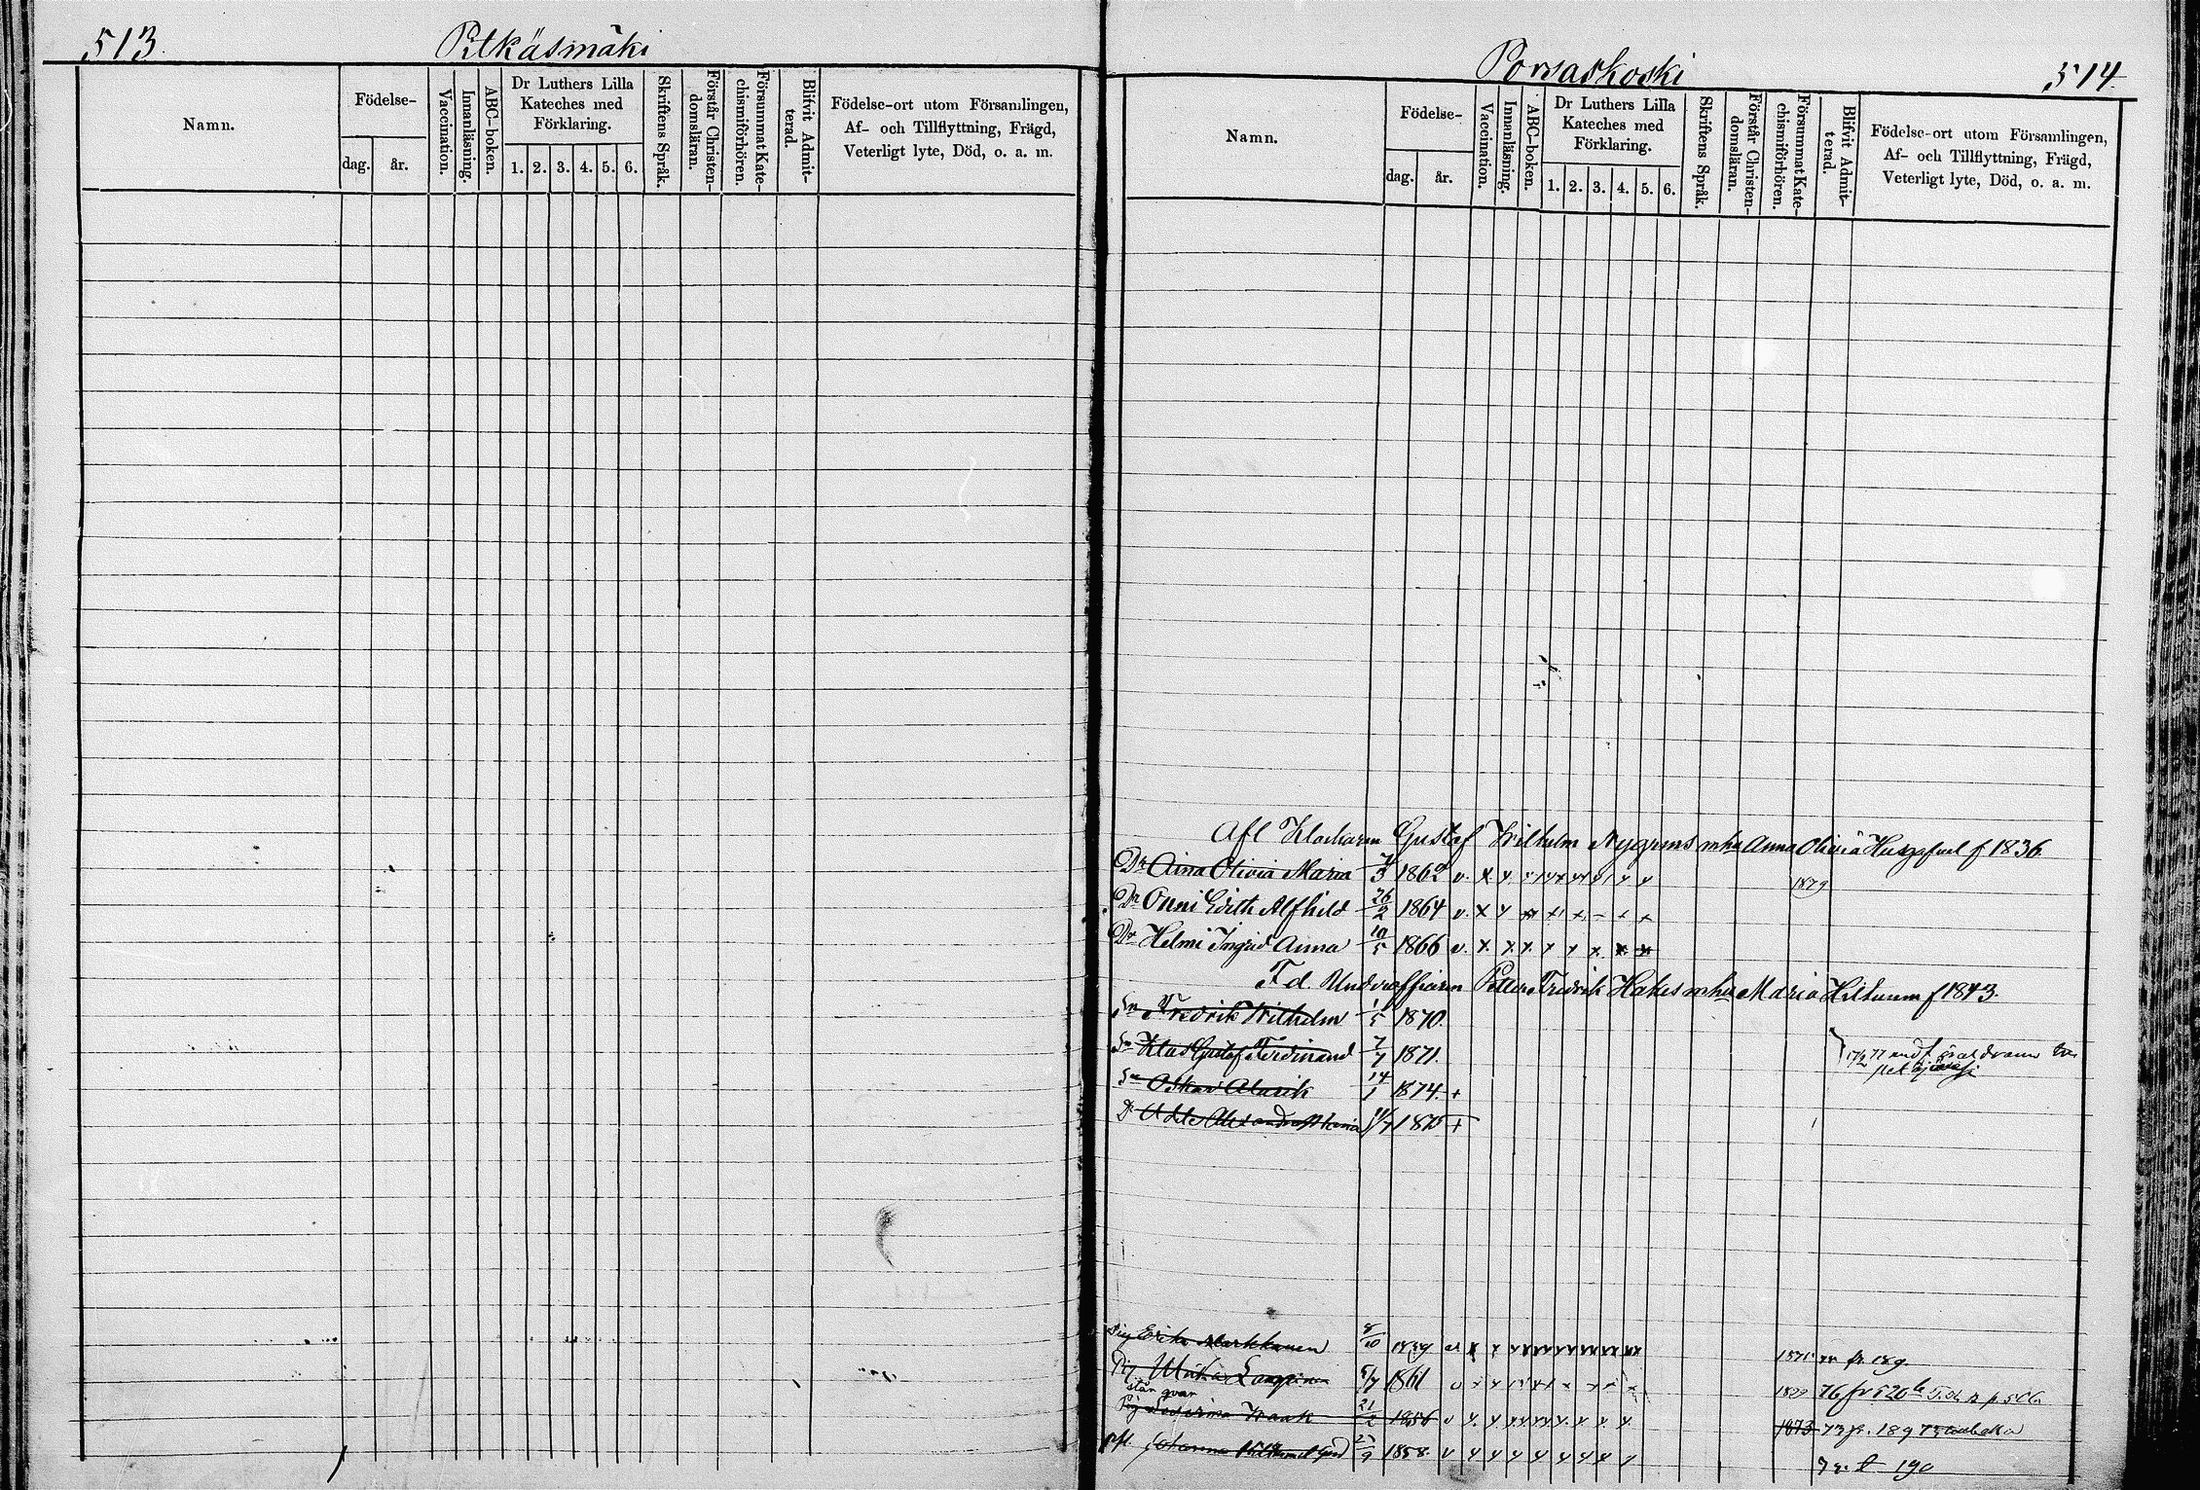 513. Pitkäsmäki
Namn.
Födelse-
dag. år.
Vaccination.
Innanläsning.
ABC-boken.
Dr Luthers Lilla
Kateches med
Förklaring.
1. 2. 3. 4. 5. 6.
Skriftens Språk.
Förstår Christen-
domsläran.
Försummat Kate-
chismiförhören.
Blifvit Admit-
terad.
Födelse-ort utom Församlingen,
Af- och Tillflyttning, Frägd,
Veterligt lyte, Död, o. a. m.
Porraskoski 514.
Namn.
Födelse-
dag. år.
Vaccination.
Innanläsning.
ABC-boken.
Dr Luthers Lilla
Kateches med
Förklaring.
1. 2. 3. 4. 5. 6.
Skriftens Språk.
Förstår Christen-
domsläran.
Försummat Kate-
chismiförhören.
Blifvit Admit-
terad.
Födelse-ort utom Församlingen,
Af- och Tillflyttning, Frägd,
Veterligt lyte, Död, o. a. m.
Afl Klockaren Gustaf Wilhelm Nygrens mhu Anna Olivia f 1836
Dr Aina Olivia Maria 1862 v. x 1879
Dr Onni Edith Alfhild 26/2 1864 v. x
Dr Helmi Ingrid Anna 10/5 1866 v. x
F.d. Underofficern Petter Fredrik Hakes mhu Maria f 1843.
Sn Fredrik Wilhelm 1/5 1870.
Sn Klas Gustaf Ferdinand 7/7 1871.
Sn Oskar Alarik 14/1 1874. +
Dr Adele Alexandra 11/7 1875 +
Pig Erika Markkanen 8/10 1839 fr. 189
Pig Ulrika 5/7 1861 v 1879 76 fr 520
står qvar
Pig Serafina 21/2 1856 v 1873 73 fr. 189
Johanna 9 1858. v 190